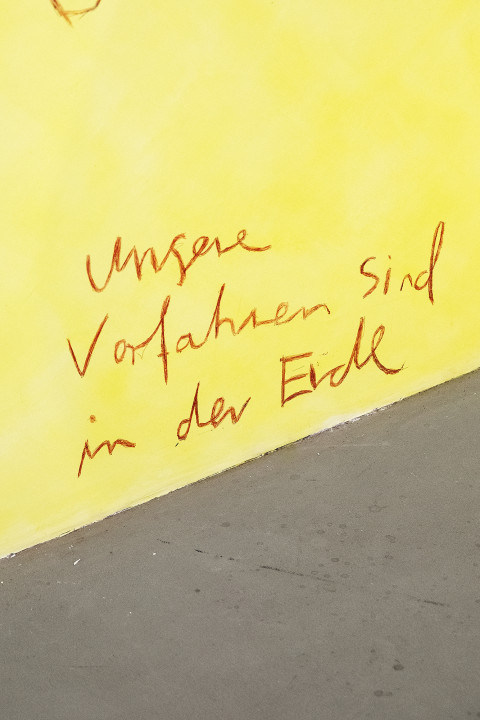 Unsere
Vorfahren sind
in der Erde